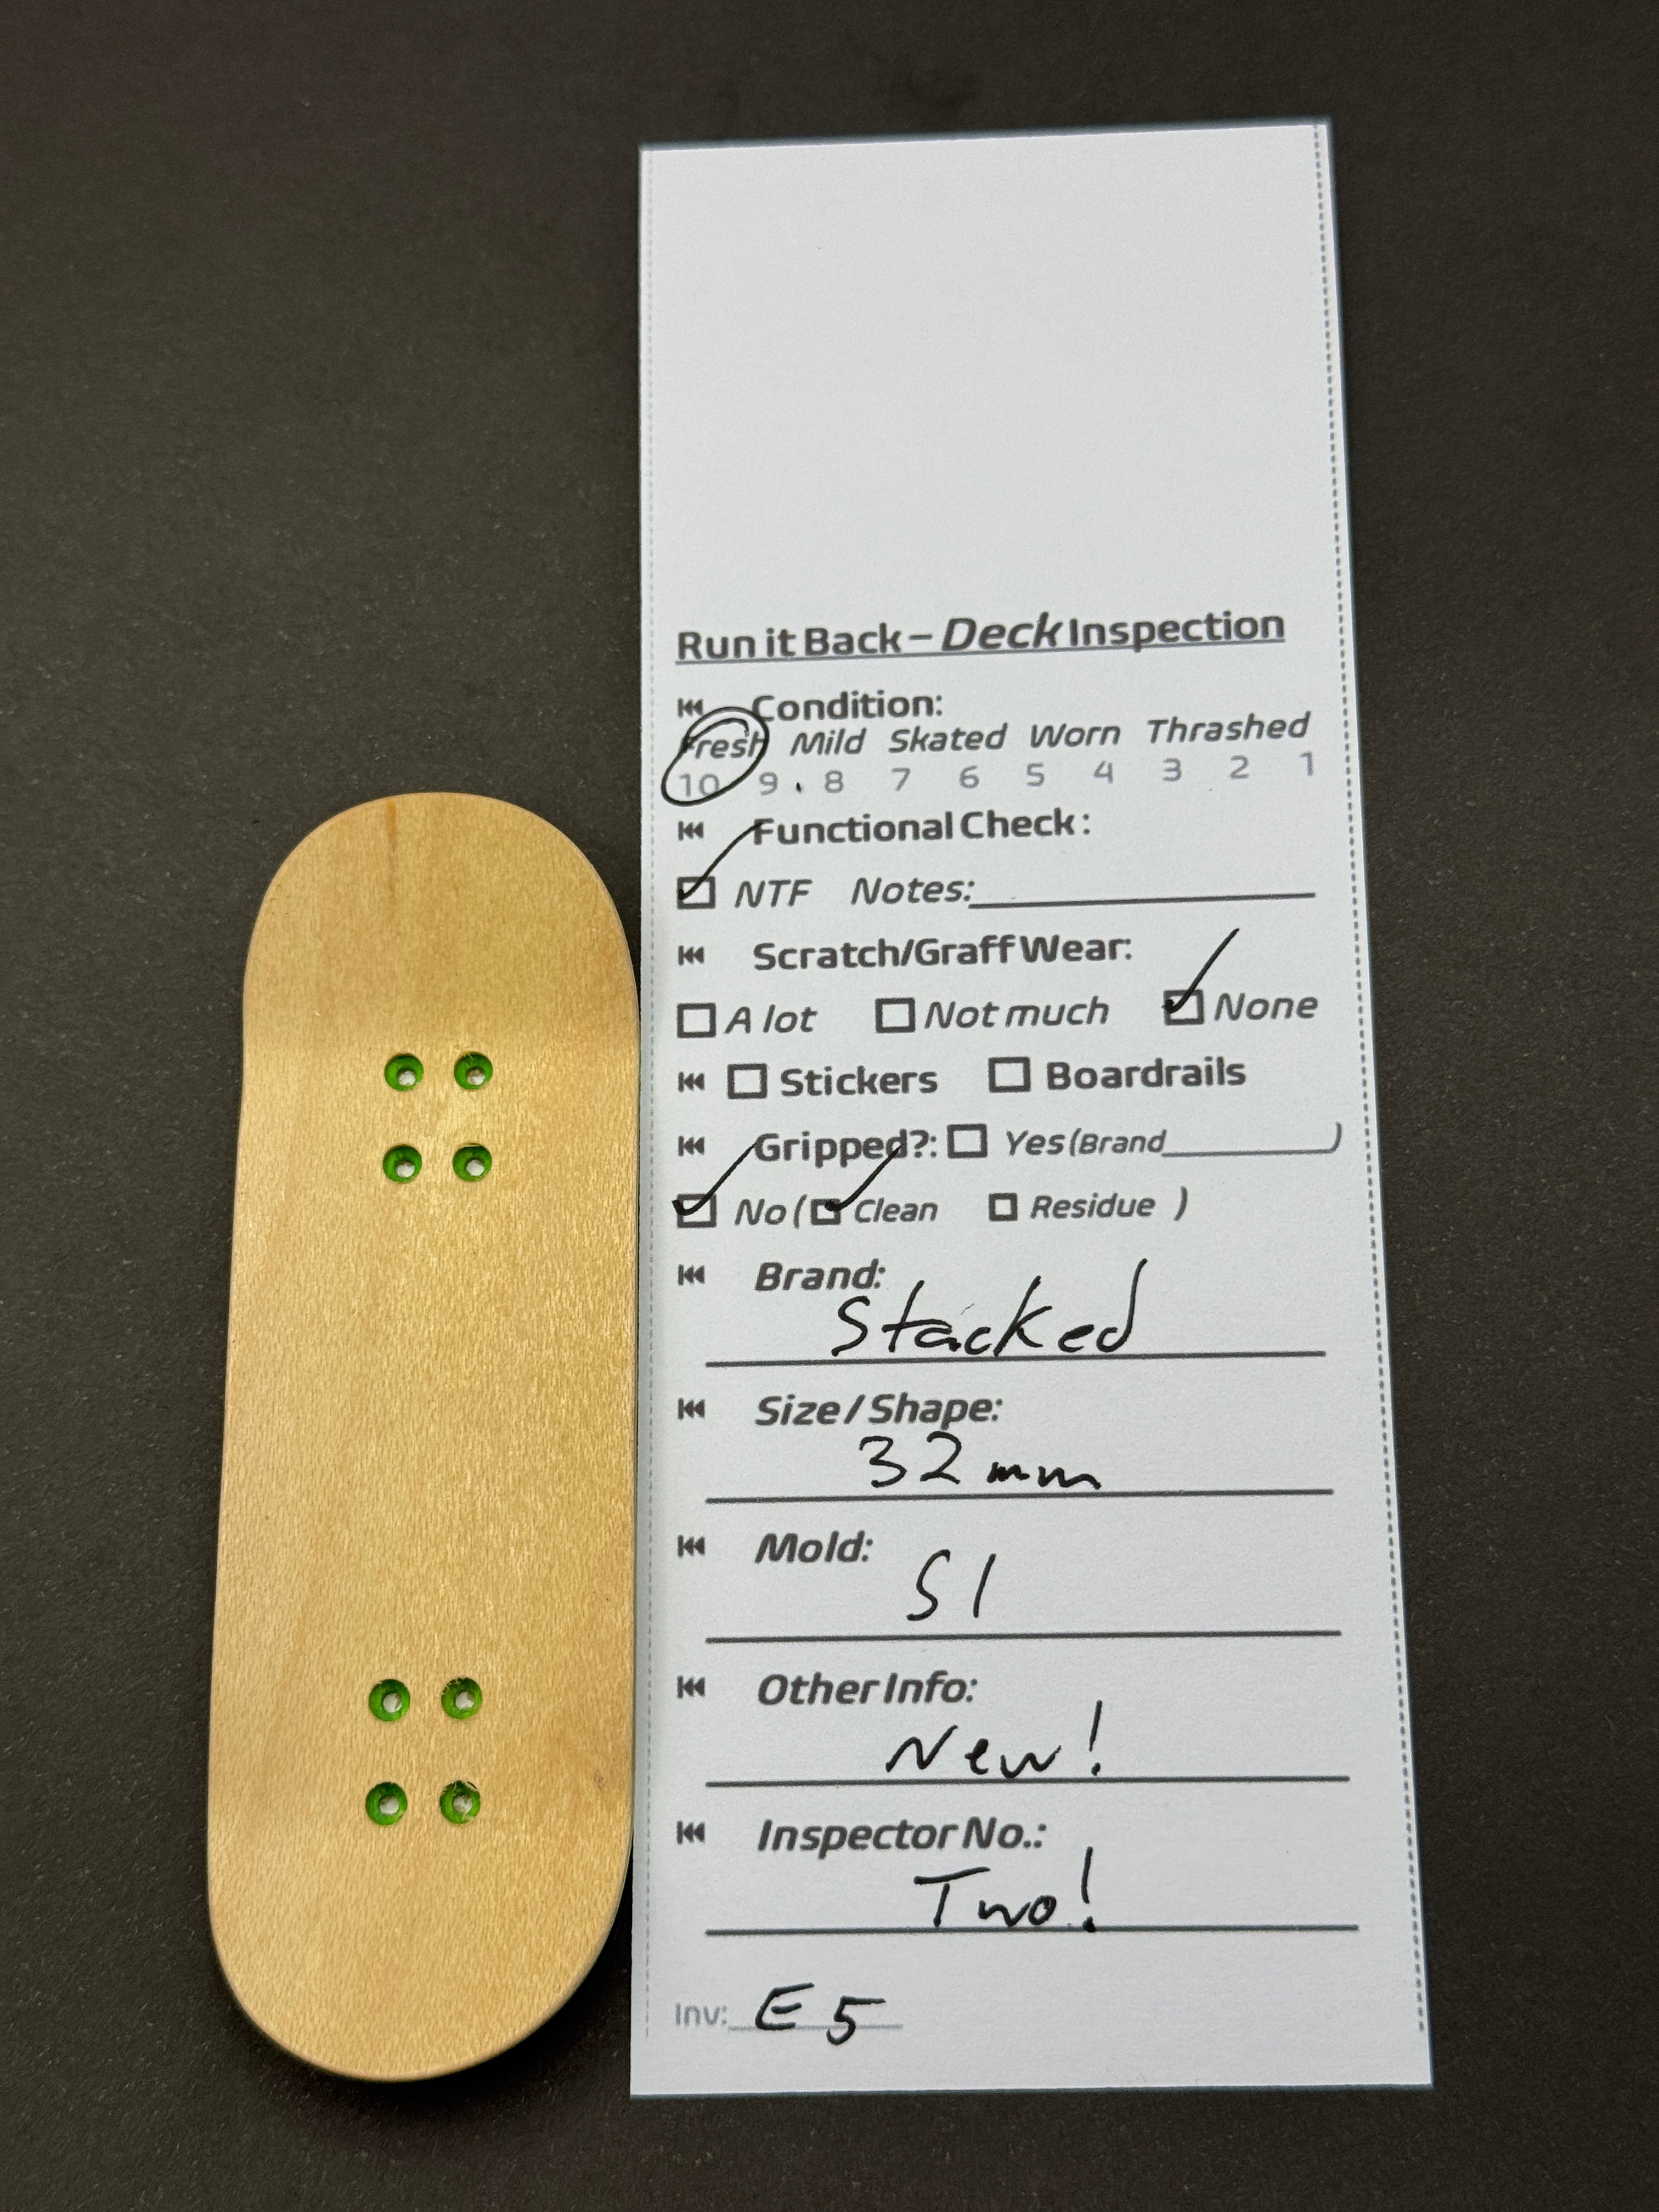 Run it Back – Deck Inspection
Condition:
Fresh Mild Skated Worn Thrashed
10 9 . 8 7 6 5 4 3 2 1
Functional Check:
NTF Notes:
Scratch/Graff Wear:
A lot Not much None
Stickers Boardrails
Gripped?: Yes (Brand )
No ( Clean Residue )
Brand:
Stacked
Size / Shape:
32mm
Mold:
S1
Other Info:
New!
Inspector No.:
Two!
Inv: E5